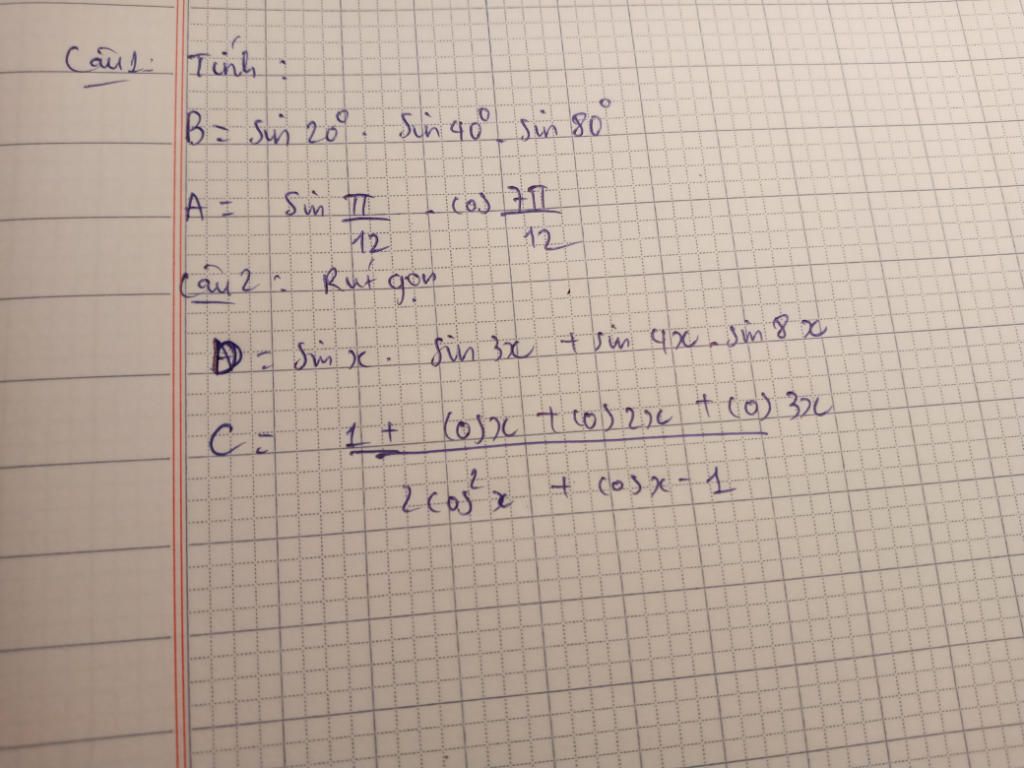 Câu 1: Tính :
B = sin 20° . sin 40° . sin 80°
A = sin π/12 . cos 7π/12
Câu 2 : Rút gọn
D = sin x . sin 3x + sin 4x . sin 8x
C = 1 + cosx + cos2x + cos3x
2cos²x + cosx - 1